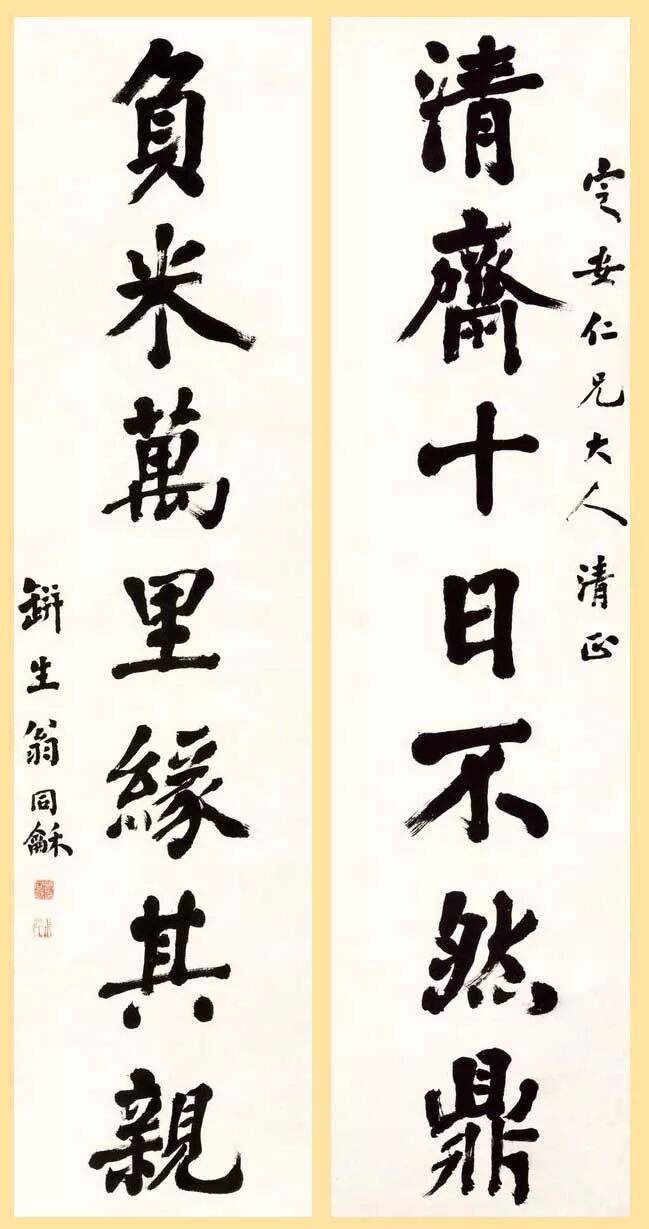 定安仁兄大人清正
清齋十日不然鼎
負米萬里緣其親
缾生翁同龢